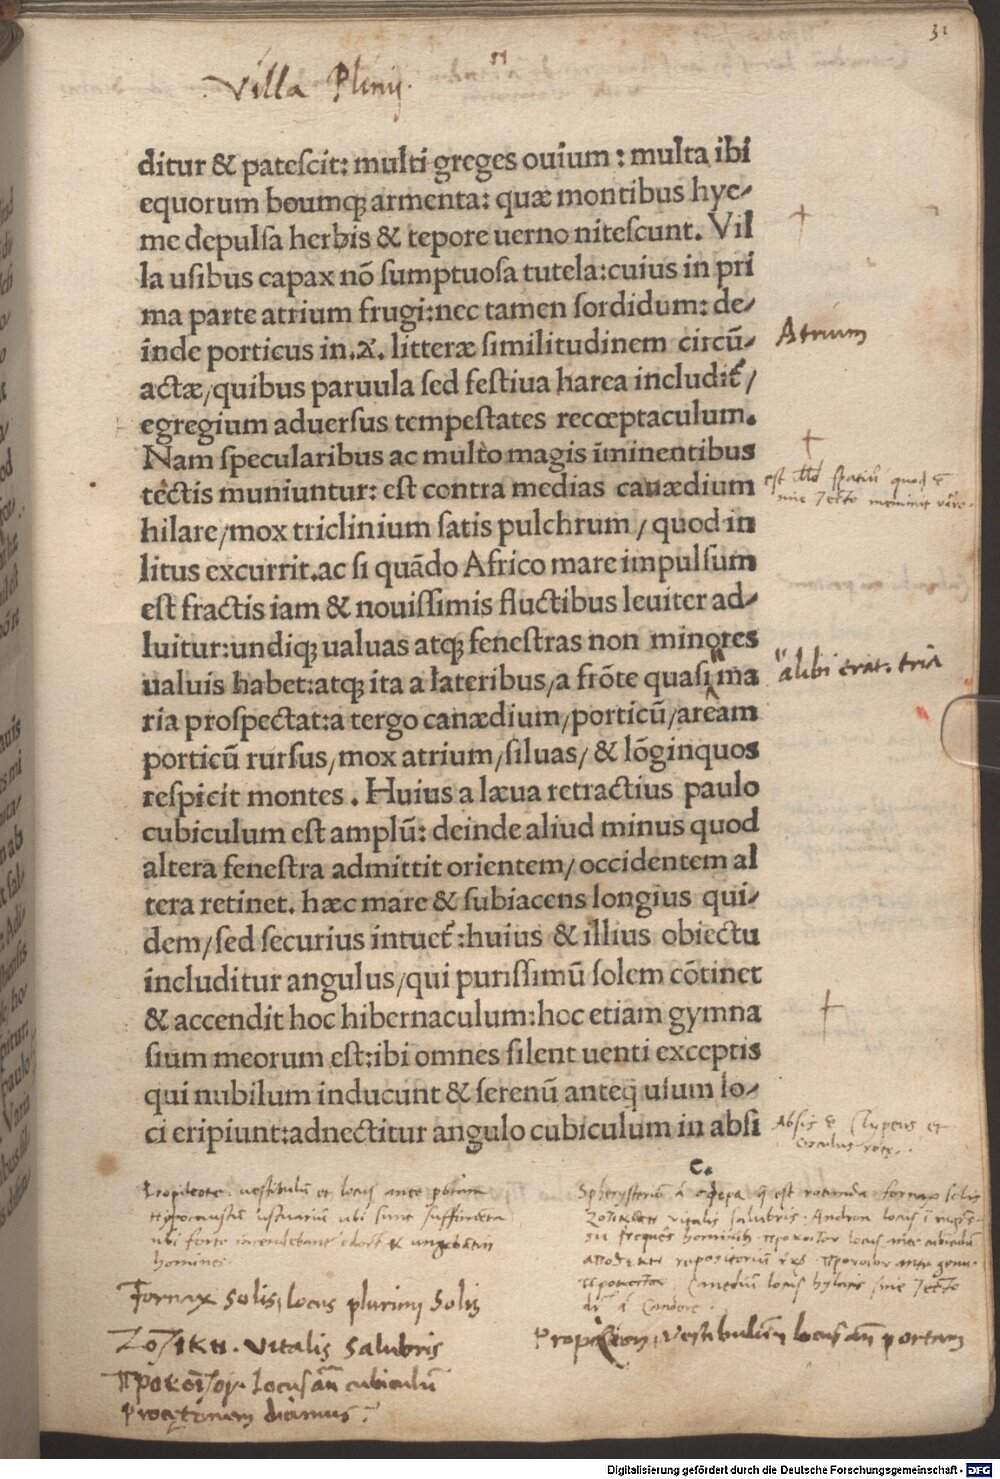 31
Villa Plinij.
ditur & pateſcit: multi greges ouium : multa ibi
equorum boumqꝫ armenta: quæ montibus hye⸗
me depulſa herbis & tepore uerno niteſcunt. Vil
la uſibus capax nõ ſumptuoſa tutela:cuius in pri
ma parte atrium frugi:nec tamen ſordidum: de⸗
inde porticus in.A. litteræ ſimilitudinem circũ⸗
Atrium
actæ/quibus paruula ſed feſtiua harea includit᷑/
egregium aduerſus tempeſtates recœptaculum.
Nam ſpecularibus ac multo magis ĩminentibus
tectis muniuntur: eſt contra medias canædium
est
quod
sine tecto meminit varro.
hilare/mox triclinium ſatis pulchrum / quod in
litus excurrit.ac ſi quãdo Africo mare impulſum
eſt fractis iam & nouiſſimis fluctibus leuiter ad⸗
luitur:undiqꝫ ualuas atqꝫ feneſtras non minores
ualuis habet:atqꝫ ita a lateribus/a frõte quaſi ma
alibi erat. tria
ria proſpectat:a tergo canædium/porticũ/aream
porticũ rurſus/mox atrium/ſiluas/ & lõginquos
reſpicit montes . Huius a læua retractius paulo
cubiculum eſt amplũ: deinde aliud minus quod
altera feneſtra admittit orientem/occidentem al
tera retinet. hæc mare & ſubiacens longius qui⸗
dem/ſed ſecurius intuet᷑ :huius & illius obiectu
includitur angulus/qui puriſſimũ ſolem cõtinet
& accendit hoc hibernaculum:hoc etiam gymna
ſium meorum eſt:ibi omnes ſilent uenti exceptis
qui nubilum inducunt & ſerenũ anteq uſum lo⸗
ci eripiunt:adnectitur angulo cubiculum in abſi
Absis
Clypeus et
circulus
c.
vestibulũ
locus ante portam
ubi sunt
homines
fornax solis
vitalis salubris. Andron locus
locus ante cubiculũ
repositorium
locus hylaris sine tecto
Fornax solis, locus plurimi solis
Ζοτικη. vitalis salubris
locus an̄ cubiculũ
dicimus.
vestibulũ locus an̄ portam
Digitalisierung gefördert durch die Deutsche Forschungsgemeinschaft - DFG